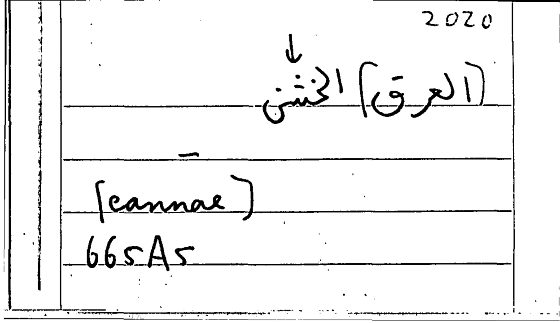 2020
(العرق) الخشن
[cannae]
665A5